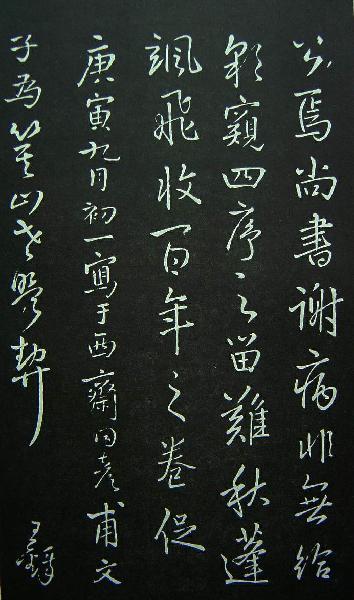 公焉尚書謝病非無給
窺四序之留難秋蓬
颯飛收百年之卷促
庚寅九月初一寫于西齋同彥甫文
子為山老契
王鐸